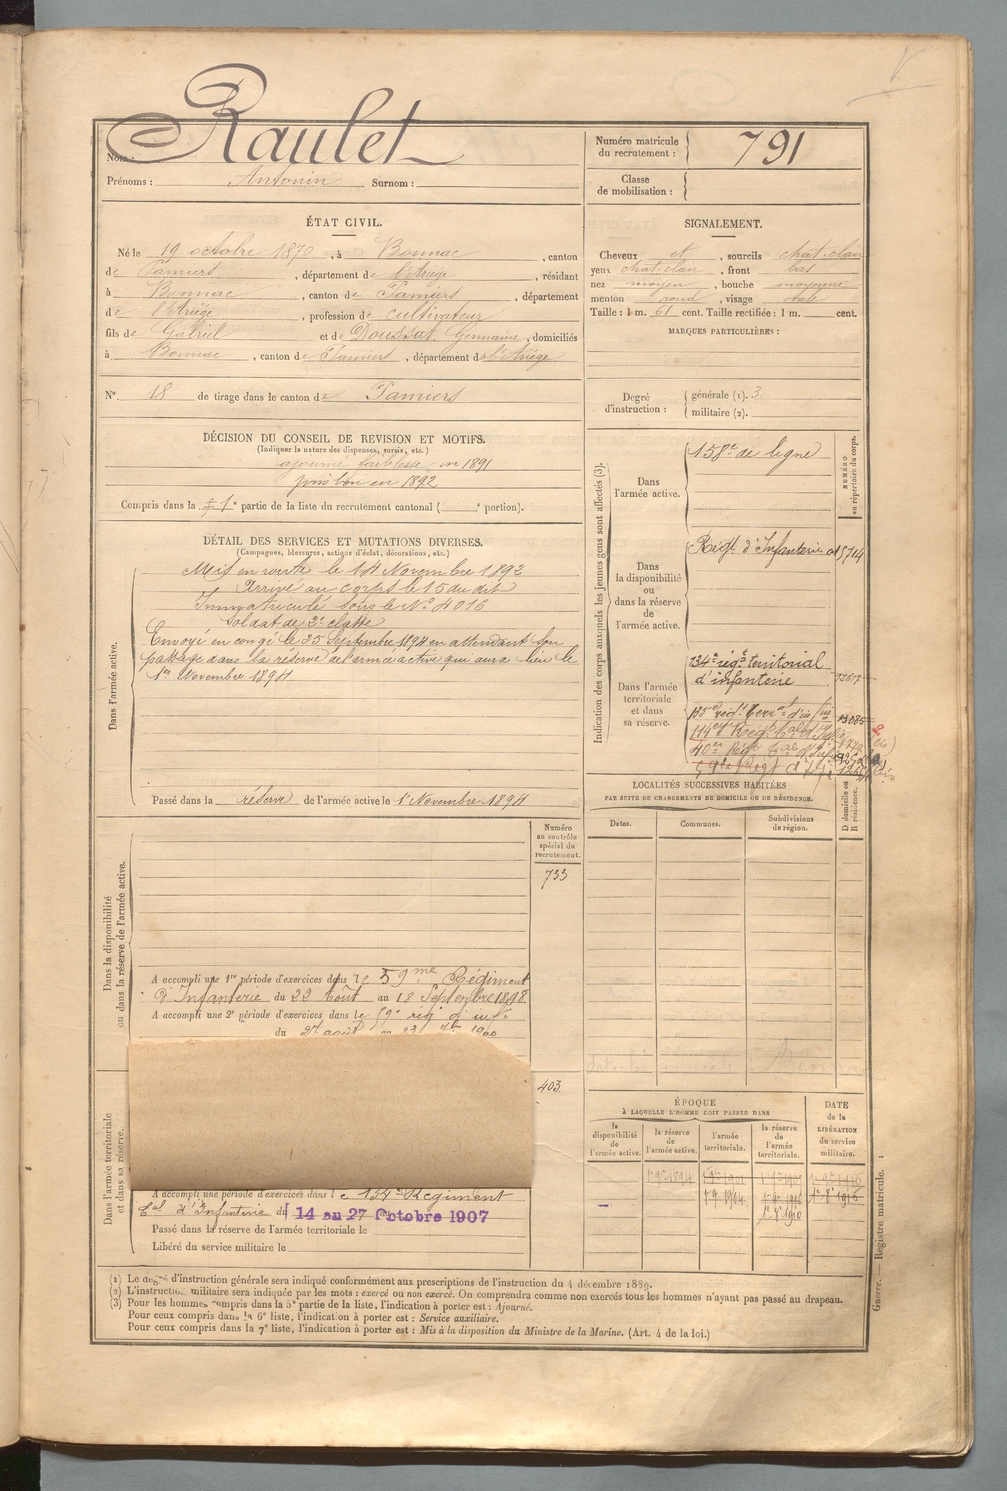 Nom : Raulet
Prénoms : Antonin Surnom :
Numéro matricule du recrutement : 791
Classe de mobilisation :
ÉTAT CIVIL.
Né le 19 octobre 1870, à Bonnac, canton
de Pamiers, département de l'Ariège, résidant
à Bonnac, canton de Pamiers, département
de l'Ariège, profession de cultivateur
fils de Gabriel et de Doussat Germaine, domiciliés
à Bonnac, canton de Pamiers, département de l'Ariège
N° 18 de tirage dans le canton de Pamiers
SIGNALEMENT.
Cheveux et, sourcils chat. clair
yeux chat. clair, front bas
nez moyen, bouche moyenne
menton rond, visage ovale
Taille : 1 m. 61 cent. Taille rectifiée : 1 m. cent.
MARQUES PARTICULIÈRES :
Degré d'instruction : générale (1). 3
militaire (2).
DÉCISION DU CONSEIL DE REVISION ET MOTIFS.
(Indiquer la nature des dispenses, sursis, etc.)
ajourné faiblesse en 1891
puis bon en 1892
Compris dans la 1e partie de la liste du recrutement cantonal ( e portion).
DÉTAIL DES SERVICES ET MUTATIONS DIVERSES.
(Campagnes, blessures, actions d'éclat, décorations, etc.)
Dans l'armée active.
Mis en route le 14 Novembre 1892
Arrivé au corps le 15 du dit
Immatriculé sous le N° 4016
Soldat de 2e classe
Envoyé en congé le 25 Septembre 1894 en attendant son
passage dans la réserve de l'armée active qui aura lieu le
1er Novembre 1894
Passé dans la réserve de l'armée active le 1er Novembre 1894
Indication des corps auxquels les jeunes gens sont affectés (3).
NUMÉRO au répertoire du corps.
Dans l'armée active.
158e de ligne
Dans la disponibilité ou dans la réserve de l'armée active.
Régt. d'Infanterie
Dans l'armée territoriale et dans sa réserve.
134e régt territorial
d'infanterie
135e régt terral d'inf
LOCALITÉS SUCCESSIVES HABITÉES
PAR SUITE DE CHANGEMENTS DE DOMICILE OU DE RÉSIDENCE.
Dates. Communes. Subdivisions de région. D domicile ou R résidence.
Dans la disponibilité ou dans la réserve de l'armée active.
Numéro au contrôle spécial du recrutement.
733
A accompli une 1re période d'exercices dans le 59me Régiment
d'Infanterie du 22 Août au 18 Septembre 1898
A accompli une 2e période d'exercices dans le 59e rég d'infie
du 27 août au 23 7bre 1900
403
Dans l'armée territoriale et dans sa réserve.
A accompli une période d'exercices dans le 134e Régiment
tal d'Infanterie du 14 au 27 Octobre 1907
Passé dans la réserve de l'armée territoriale le
Libéré du service militaire le
ÉPOQUE
À LAQUELLE L'HOMME DOIT PASSER DANS
la disponibilité de l'armée active.
la réserve de l'armée active.
l'armée territoriale.
la réserve de l'armée territoriale.
DATE de la LIBÉRATION du service militaire.
(1) Le degré d'instruction générale sera indiqué conformément aux prescriptions de l'instruction du 4 décembre 1889.
(2) L'instruction militaire sera indiquée par les mots : exercé ou non exercé. On comprendra comme non exercés tous les hommes n'ayant pas passé au drapeau.
(3) Pour les hommes compris dans la 5e partie de la liste, l'indication à porter est : Ajourné.
Pour ceux compris dans la 6e liste, l'indication à porter est : Service auxiliaire.
Pour ceux compris dans la 7e liste, l'indication à porter est : Mis à la disposition du Ministre de la Marine. (Art. 4 de la loi.)
Guerre. — Registre matricule. 1